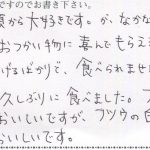 ですのでお書き下さい。
頃から大好きです。が、なかなか
おつかい物に喜んでもらえ
げるばかりで、食べられませ
久しぶりに食べました。
おいしいですが、フツウの
おいしいです。